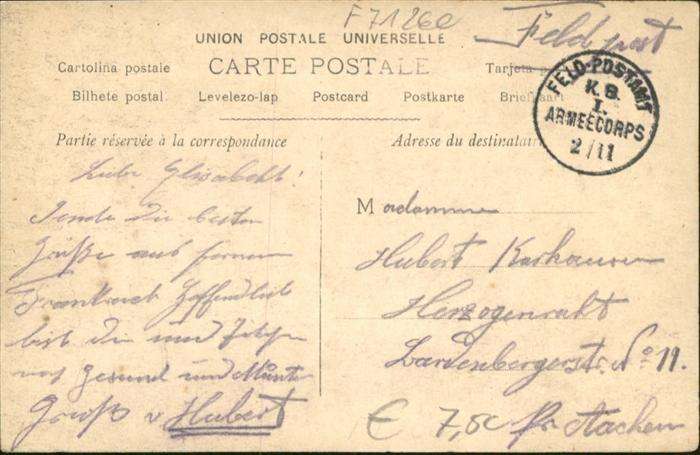 F7126e
Feldpost
UNION POSTALE UNIVERSELLE
Cartolina postale CARTE POSTALE Tarjeta postal
Bilhete postal Levelezo-lap Postcard Postkarte Briefkaart
FELD-POSTAMT
K.B.
I.
ARMEECORPS
2/11
Partie réservée à la correspondance
Liebe Elisabeth!
Sende die besten
Grüße aus fernem
Frankreich Hoffendlich
bist du und
noch gesund und Munter
Gruß v Hubert
Adresse du destinataire
Madamme
Hubert Karhausen
Herzogenraht
Bardenbergerstr. No 11.
€ 7,50 Aachen